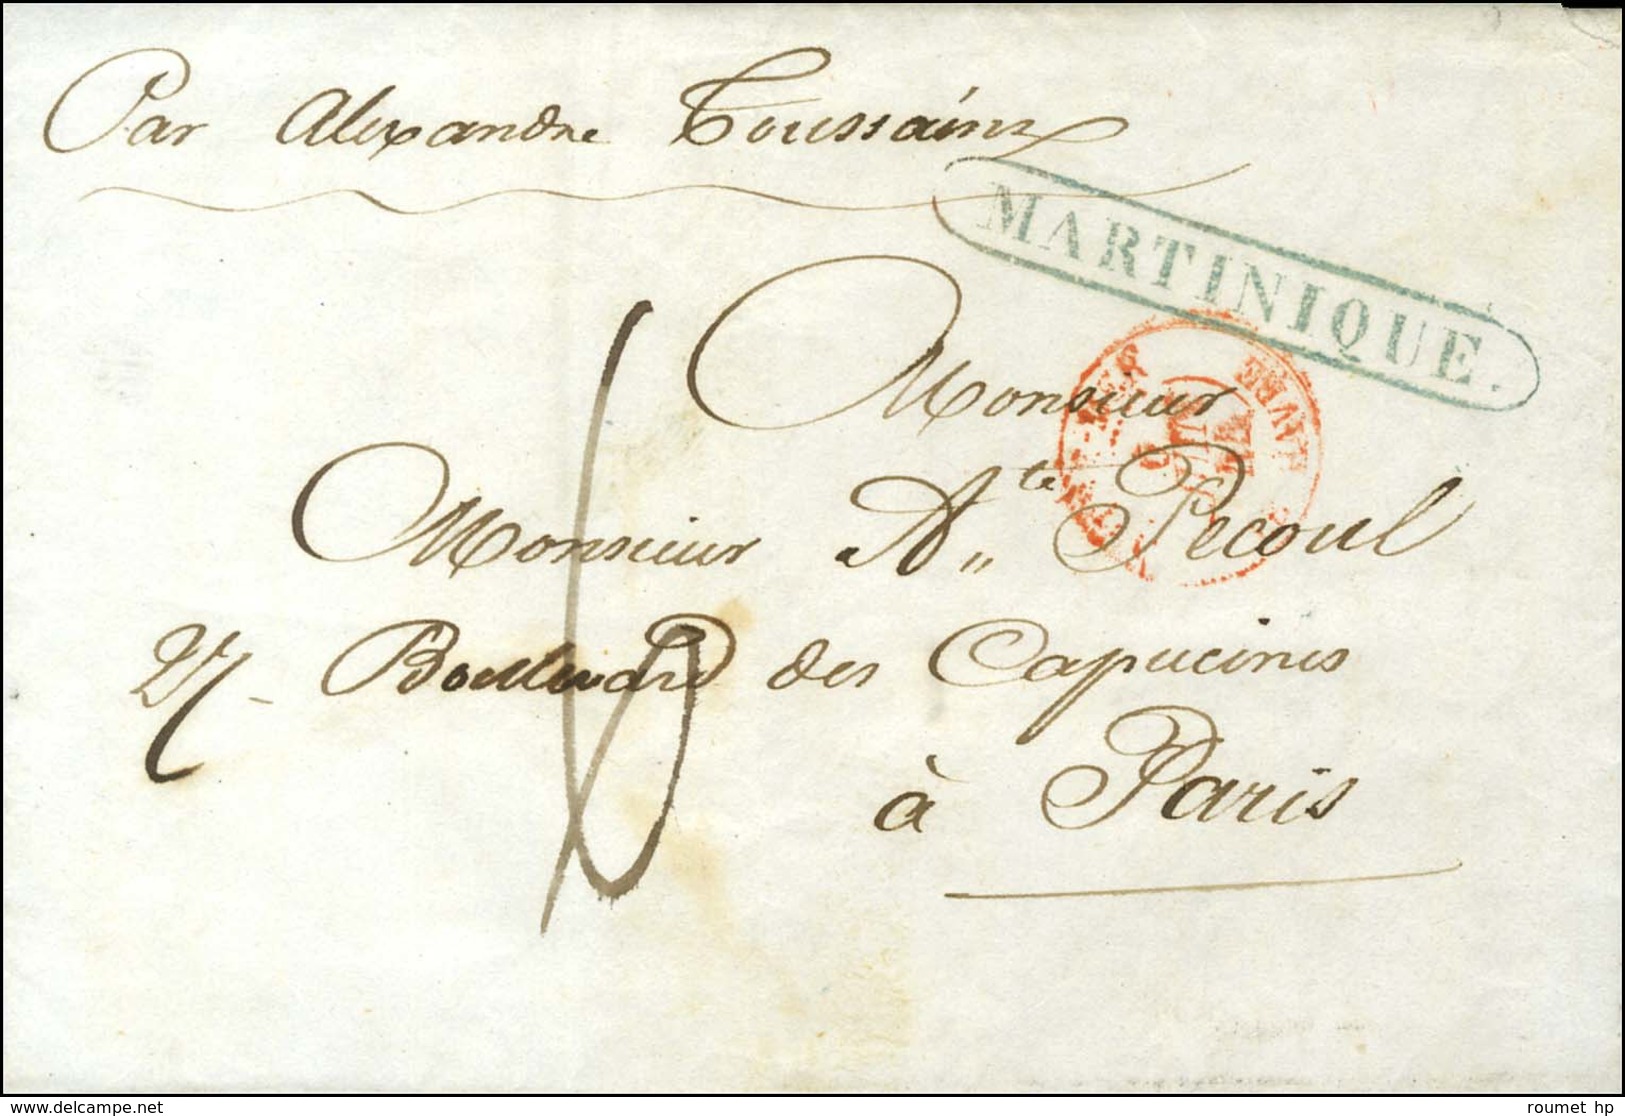 Par Alexandre Toussaint
MARTINIQUE.
Monsieur
Monsieur Ate Pecoul
27 Boulevard des Capucines
à Paris
roumet hp